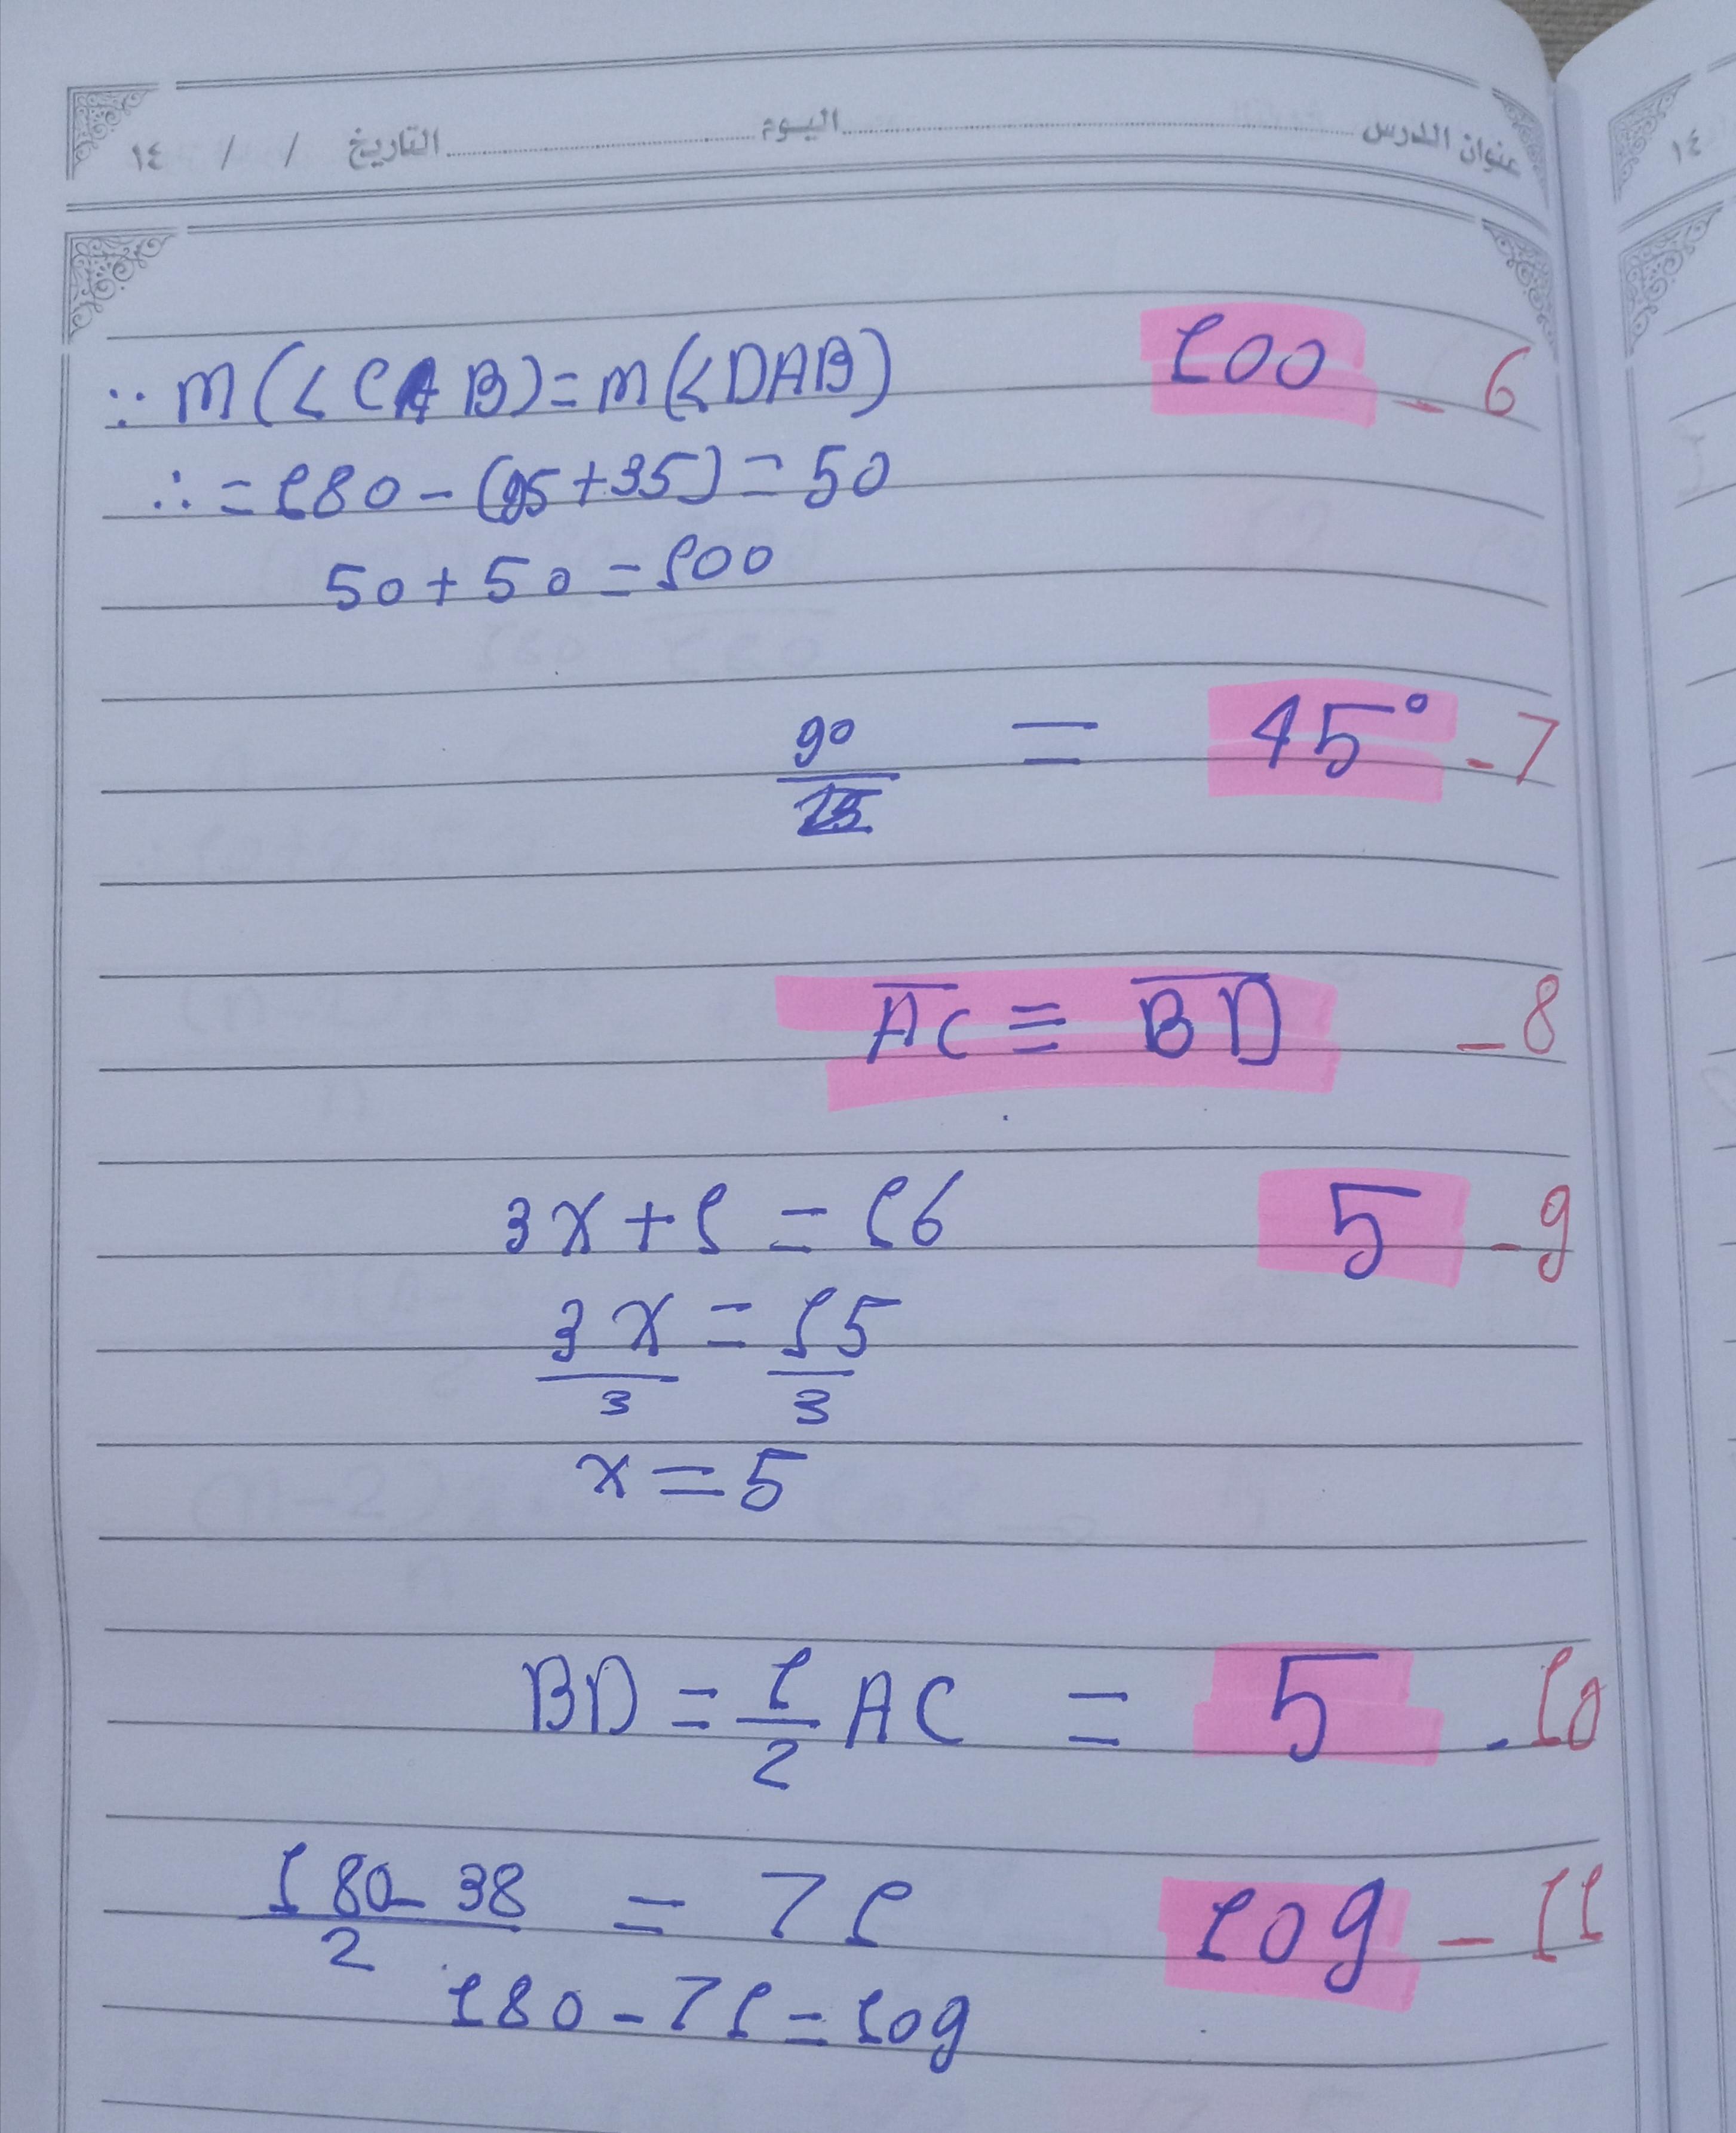 عنوان الدرس ........ اليوم ........ التاريخ / / ١٤
6 - 100
∵ m(<CAB) = m(<DAB)
∴ = 180 - (95+35) = 50
50 + 50 = 100
7 - 45° = 90/
8 - AC ≡ BD
9 - 5
3x + 1 = 16
3x/3 = 15/3
x = 5
10 - 5 = BD = 1/2 AC
11 - 109
180 - 38 / 2 = 71
180 - 71 = 109